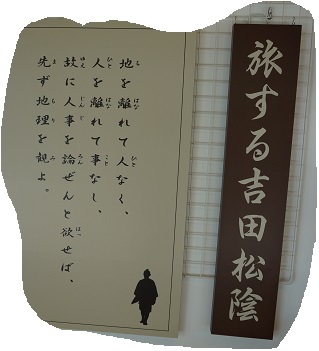 旅する吉田松陰
地を離れて人なく、
人を離れて事なし、
故に人事を論ぜんと欲せば、
先ず地理を観よ。